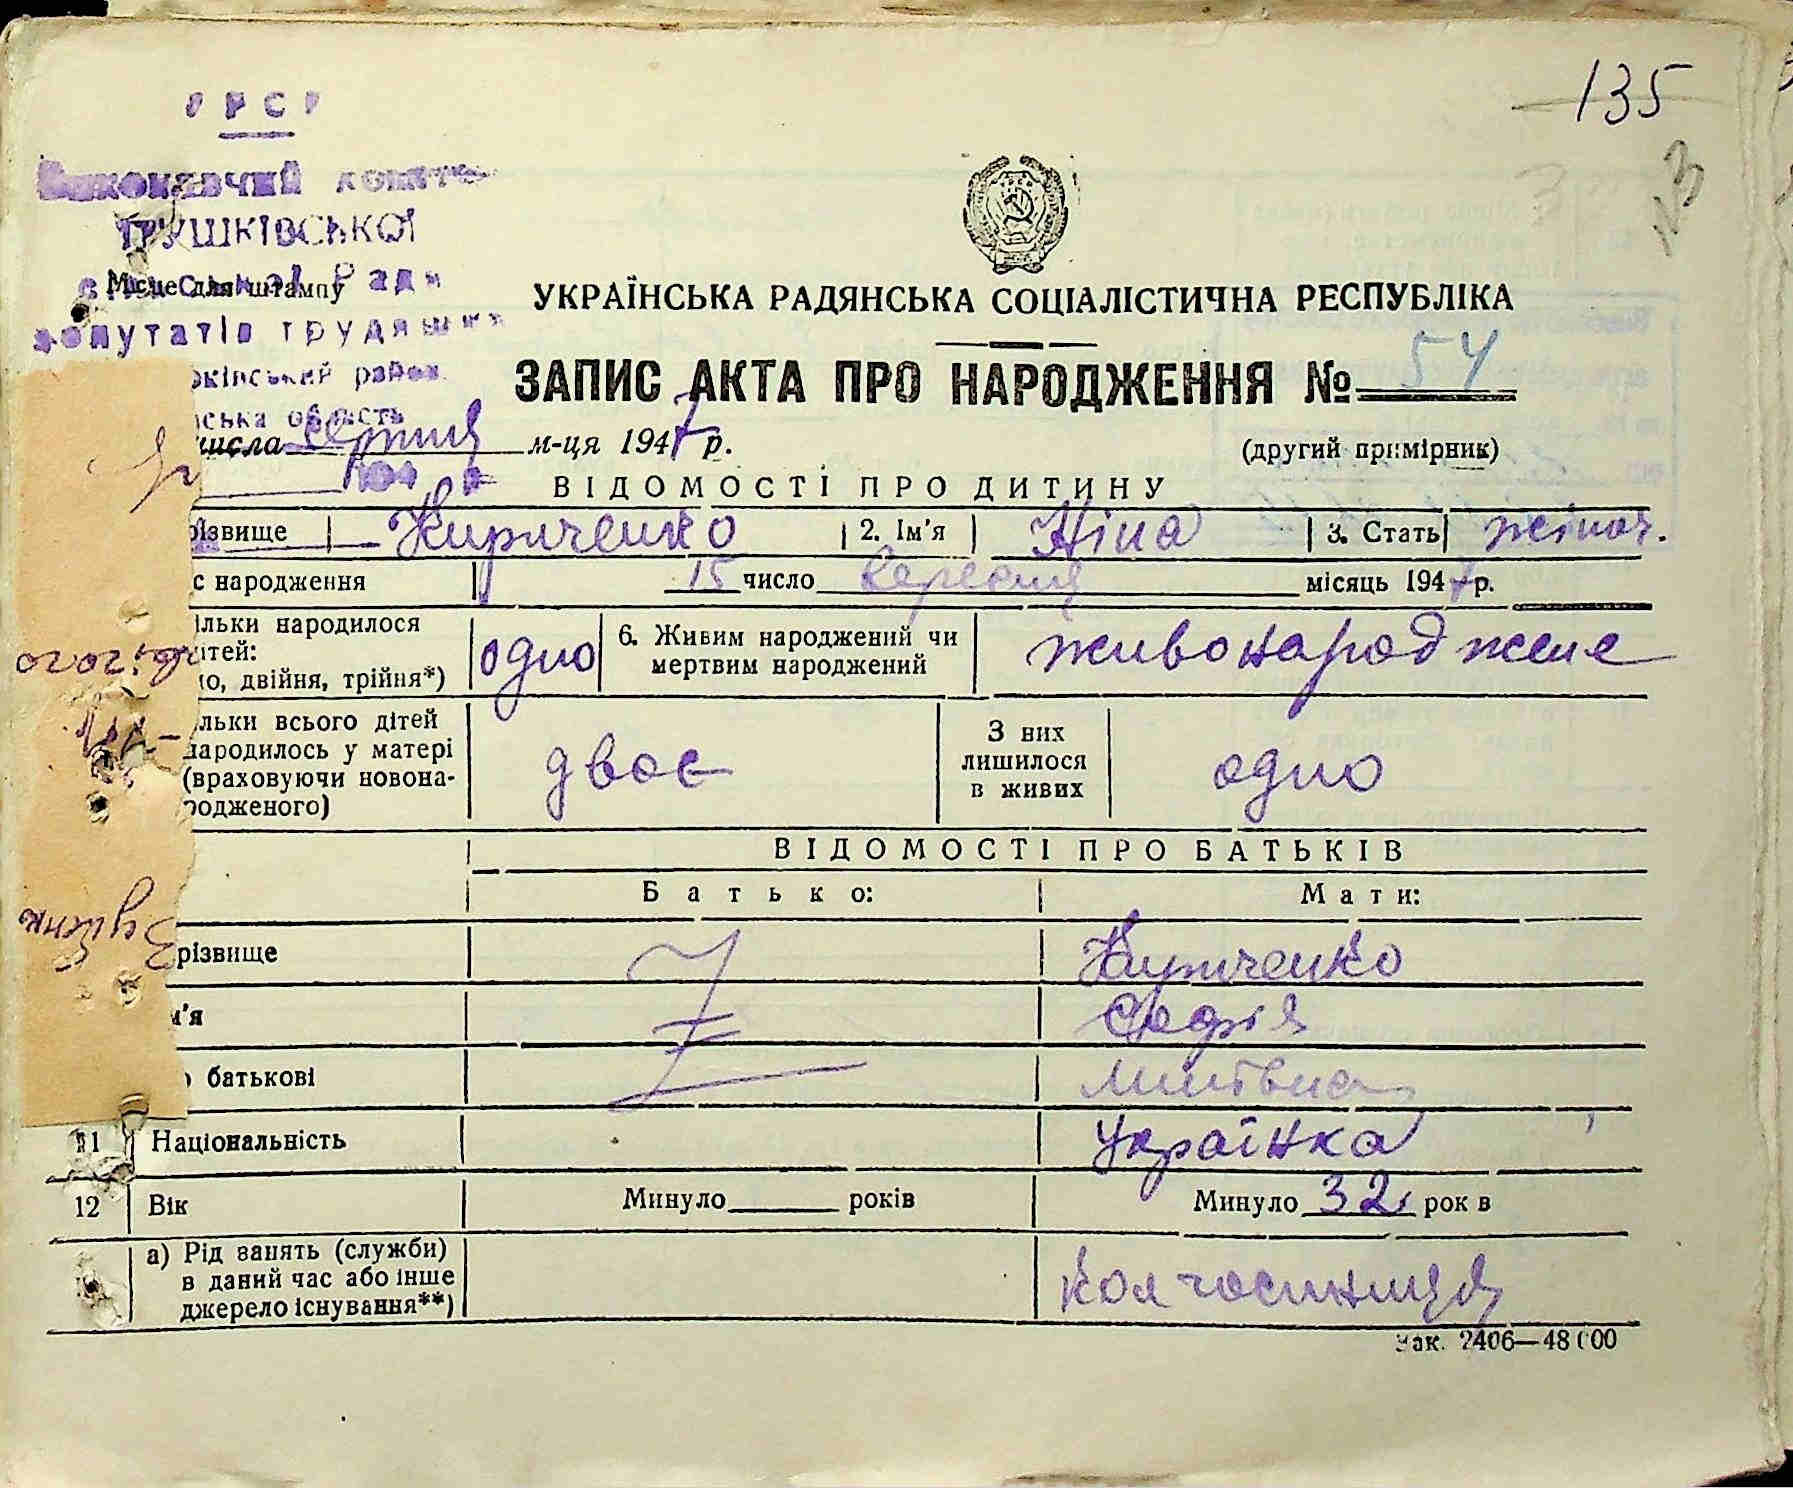 135
Виконавчий комітет
ТРУШКІВСЬКОЇ
Місце для штампу
Ради
депутатів трудящих
район
область
УКРАЇНСЬКА РАДЯНСЬКА СОЦІАЛІСТИЧНА РЕСПУБЛІКА
ЗАПИС АКТА ПРО НАРОДЖЕННЯ № 54
числа серпня м-ця 1947 р.
(другий примірник)
ВІДОМОСТІ ПРО ДИТИНУ
різвище Кириченко 2. Ім'я Ніна 3. Стать жіноч.
с народження 15 число вересня місяць 1947 р.
ільки народилося
ітей:
но, двійня, трійня*) одно 6. Живим народжений чи
мертвим народжений живонароджене
льки всього дітей
народилось у матері
(враховуючи новона-
родженого) двоє З них
лишилося
в живих одно
ВІДОМОСТІ ПРО БАТЬКІВ
Батько: Мати:
різвище Кириченко
м'я Софія
о батькові
11 Національність Українка
12 Вік Минуло років Минуло 32 рок в
а) Рід занять (служби)
в даний час або інше
джерело існування**)
Зак. 2406—48 000